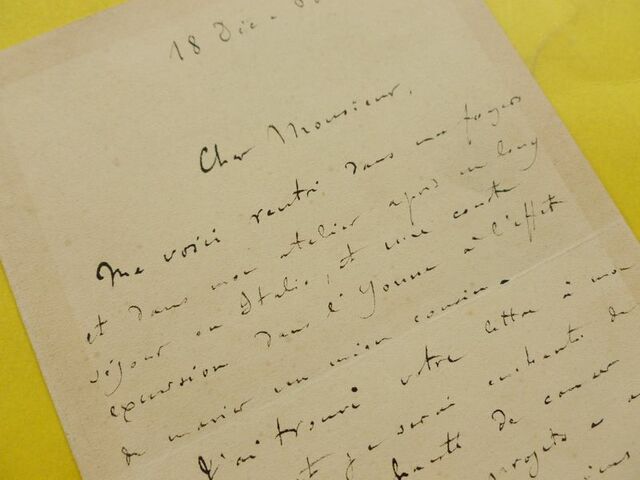 18 Dic.
Cher Monsieur,
Me voici rentré dans mes foyers
et dans mon atelier après un long
séjour en Italie, et une courte
excursion dans l'Yonne à l'effet
de marier un mien cousin.
J'ai trouvé votre lettre à mon
et je serai enchanté de
de causer
projets